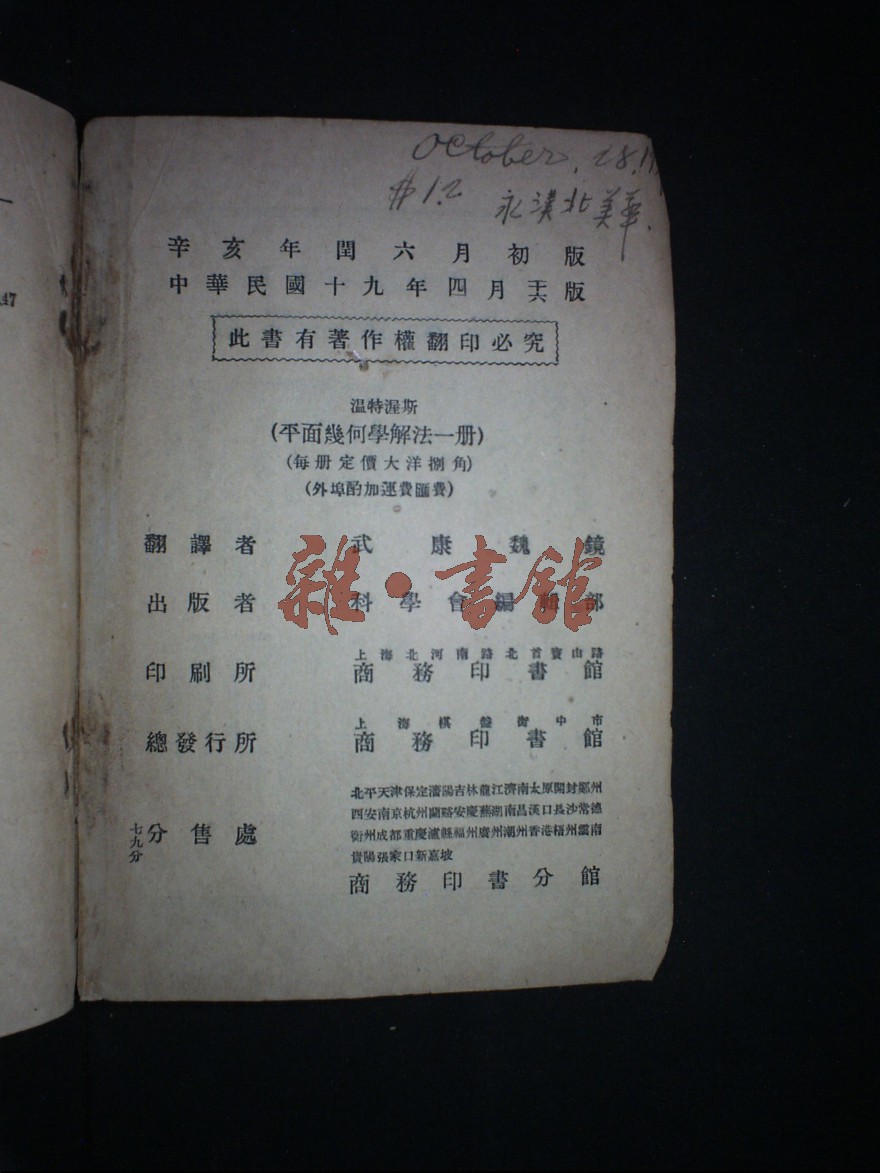 October, 28, 1
$1.2
永漢北美華.
辛亥年閏六月初版
中華民國十九年四月十六版
此書有著作權翻印必究
温特渥斯
(平面幾何學解法一册)
(每册定價大洋捌角)
(外埠酌加運費匯費)
翻譯者 武康魏鏡
出版者 科學會編輯部
上海北河南路北首寶山路
印刷所 商務印書館
上海棋盤街中市
總發行所 商務印書館
北平天津保定瀋陽吉林龍江濟南太原開封鄭州
西安南京杭州蘭谿安慶蕪湖南昌漢口長沙常德
衡州成都重慶瀘縣福州廣州潮州香港梧州雲南
貴陽張家口新嘉坡
分售處
商務印書分館
七九分
雜·書館
47